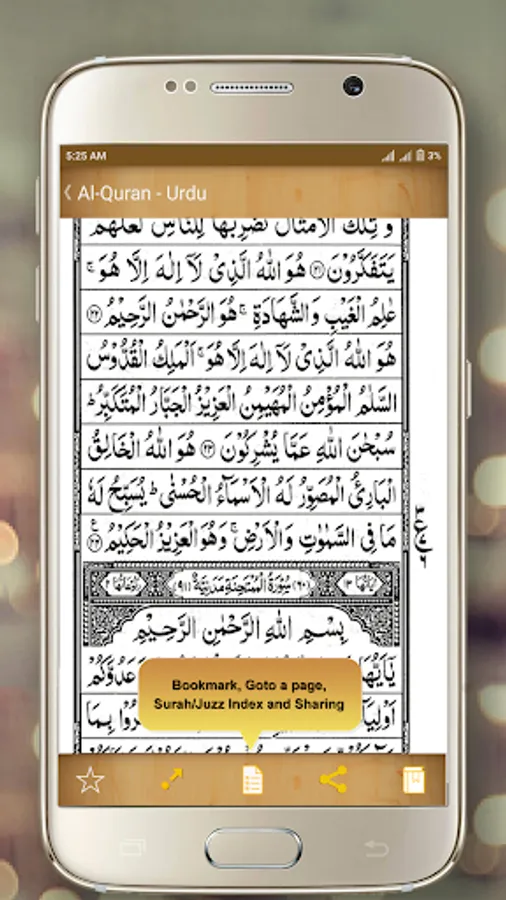 5:25 AM 3%
Al-Quran - Urdu
وَ تِلْكَ الْاَمْثَالُ نَضْرِبُهَا لِلنَّاسِ لَعَلَّهُمْ
يَتَفَكَّرُوْنَ ﴿۲۱﴾ هُوَ اللّٰهُ الَّذِیْ لَاۤ اِلٰهَ اِلَّا هُوَ ۚ
عٰلِمُ الْغَیْبِ وَالشَّهَادَةِ ۚ هُوَ الرَّحْمٰنُ الرَّحِیْمُ ﴿۲۲﴾
هُوَ اللّٰهُ الَّذِیْ لَاۤ اِلٰهَ اِلَّا هُوَ ۚ اَلْمَلِكُ الْقُدُّوْسُ
السَّلٰمُ الْمُؤْمِنُ الْمُهَیْمِنُ الْعَزِیْزُ الْجَبَّارُ الْمُتَكَبِّرُ ؕ
سُبْحٰنَ اللّٰهِ عَمَّا یُشْرِكُوْنَ ﴿۲۳﴾ هُوَ اللّٰهُ الْخَالِقُ
الْبَارِئُ الْمُصَوِّرُ لَهُ الْاَسْمَآءُ الْحُسْنٰی ؕ یُسَبِّحُ لَهٗ
مَا فِی السَّمٰوٰتِ وَالْاَرْضِ ۚ وَهُوَ الْعَزِیْزُ الْحَكِیْمُ ﴿۲۴﴾
(۶۰) سُوْرَةُ الْمُمْتَحِنَةِ مَدَنِیَّةٌ (۹۱)
بِسْمِ اللّٰهِ الرَّحْمٰنِ الرَّحِیْمِ
یٰۤاَیُّهَا عَدُوَّكُمْ
Bookmark, Goto a page,
Surah/Juzz Index and Sharing